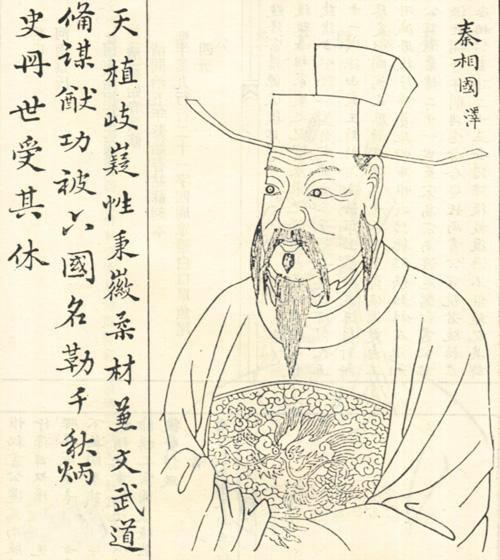 秦相國澤
天植岐嶷性秉徽柔材兼文武道
備謀猷功被六國名勒千秋炳
史冊世受其休